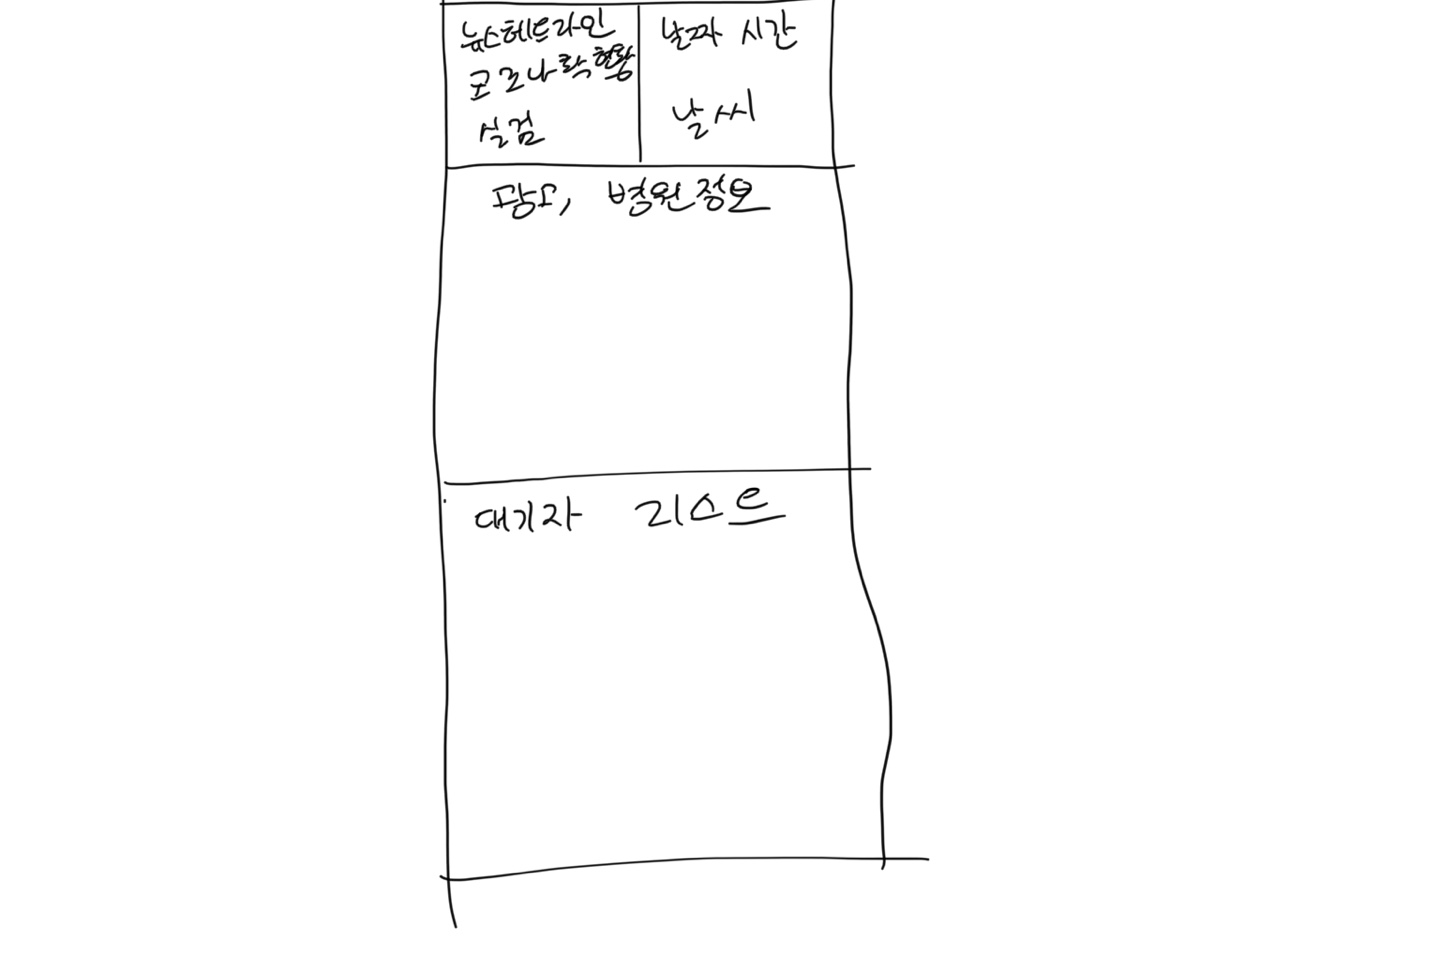 뉴스헤드라인
코로나 현황
실검
날짜 시간
날씨
광고, 병원정보
대기자 리스트